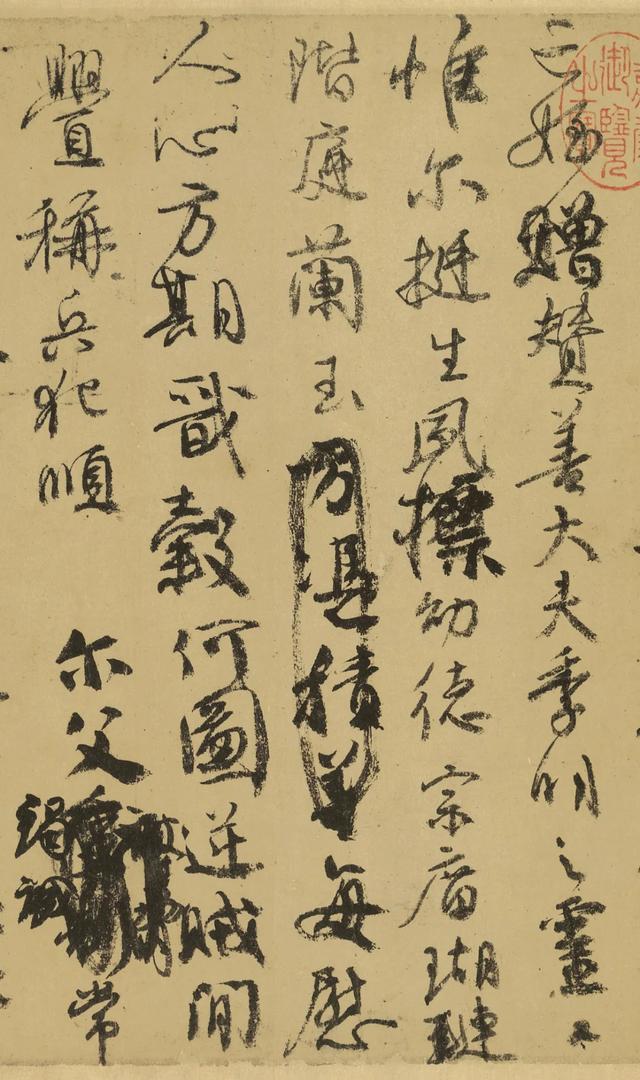 亡姪贈贊善大夫季明之靈曰
惟尔挺生夙標幼德宗廟瑚璉
階庭蘭玉方憑積善每慰
人心方期戩穀何圖逆賊閒
釁稱兵犯順 尔父竭誠常
御覽